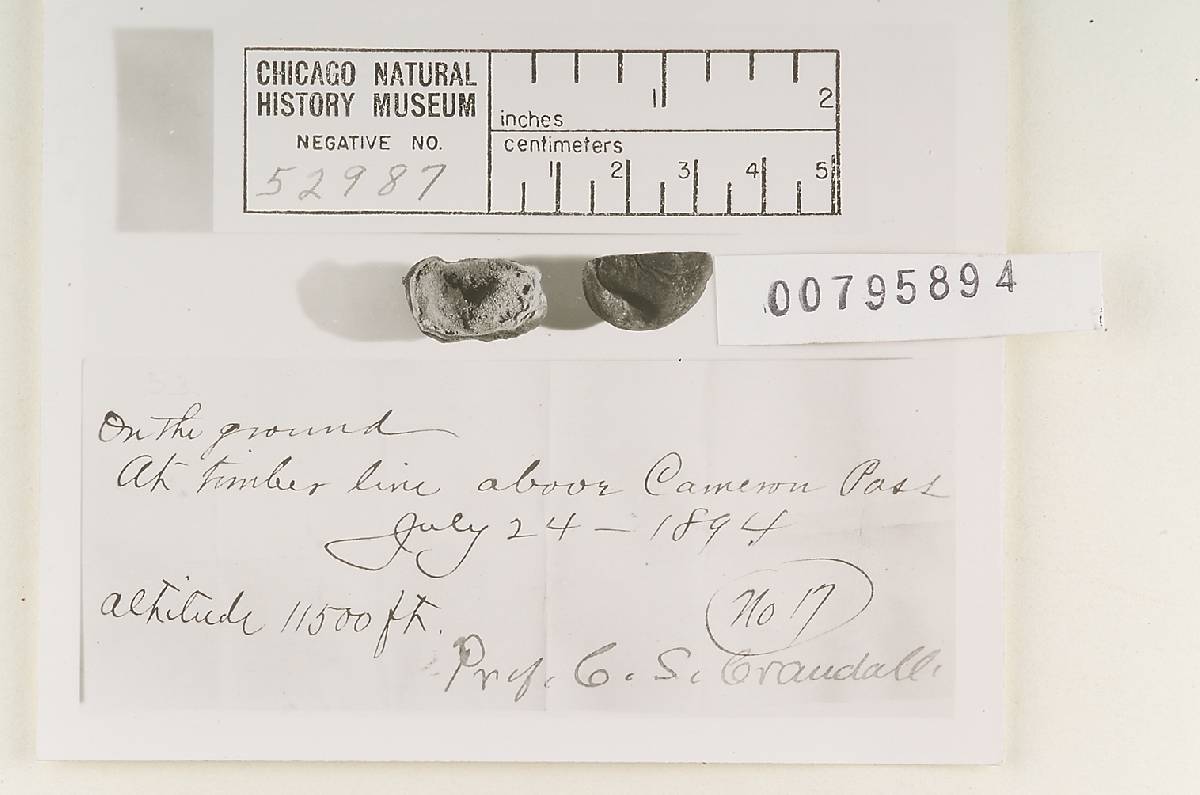 CHICAGO NATURAL
HISTORY MUSEUM
NEGATIVE NO.
52987
1 2
inches
centimeters
1 2 3 4 5
00795894
On the ground
At timber line above Cameron Pass
July 24 – 1894
altitude 11500 ft.
No 17
Prof. C. S. Crandall.